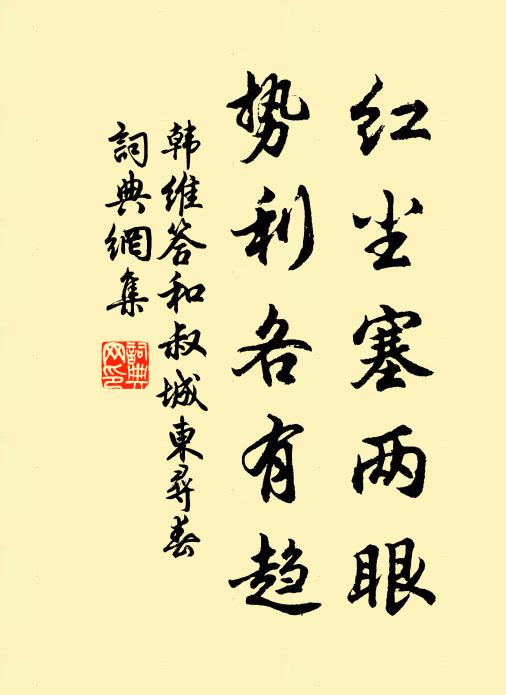 红尘塞两眼
势利各有趋
韩维答和叔城東尋春
詞典網集
詞典网印